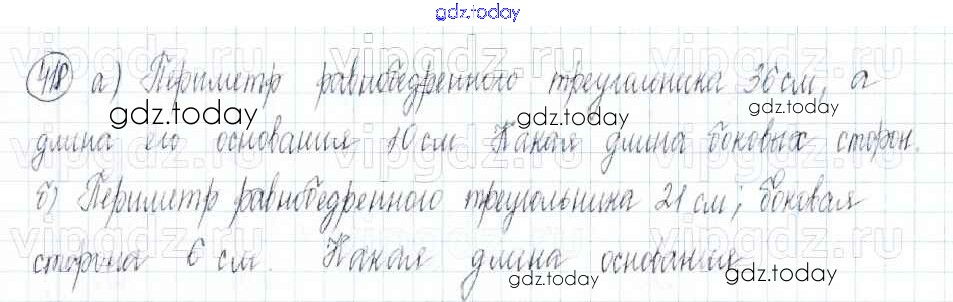 gdz.today
418 а) Периметр равнобедренного треугольника 36 см, а
длина его основания 10 см Какая длина боковых сторон.
б) Периметр равнобедренного треугольника 21 см; боковая
сторона 6 см. Какая длина основания
vipgdz.ru vipgdz.ru vipgdz.ru vipgdz.ru
gdz.today gdz.today gdz.today
gdz.today gdz.today gdz.today
gdz.today gdz.today